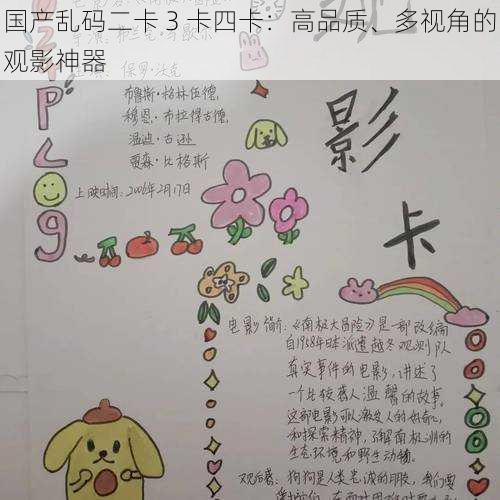 国产乱码二卡3卡四卡：高品质、多视角的
观影神器
保罗·沃克
布鲁斯·格林伍德,
穆恩·布拉得古德,
温迪·古逊
贾森·比格斯
上映时间：2006年2月17日
P
L
O
g
影
卡
电影简介：《南极大冒险》是一部改编
自1958年日本派遣越冬观测队
真实事件的电影，讲述了
一个比较感人温馨的故事。
这部电影可以激发人的好奇心
和探索精神，了解南极洲的
生态环境和野生动物
观后感：狗狗是人类忠诚的朋友，我们要